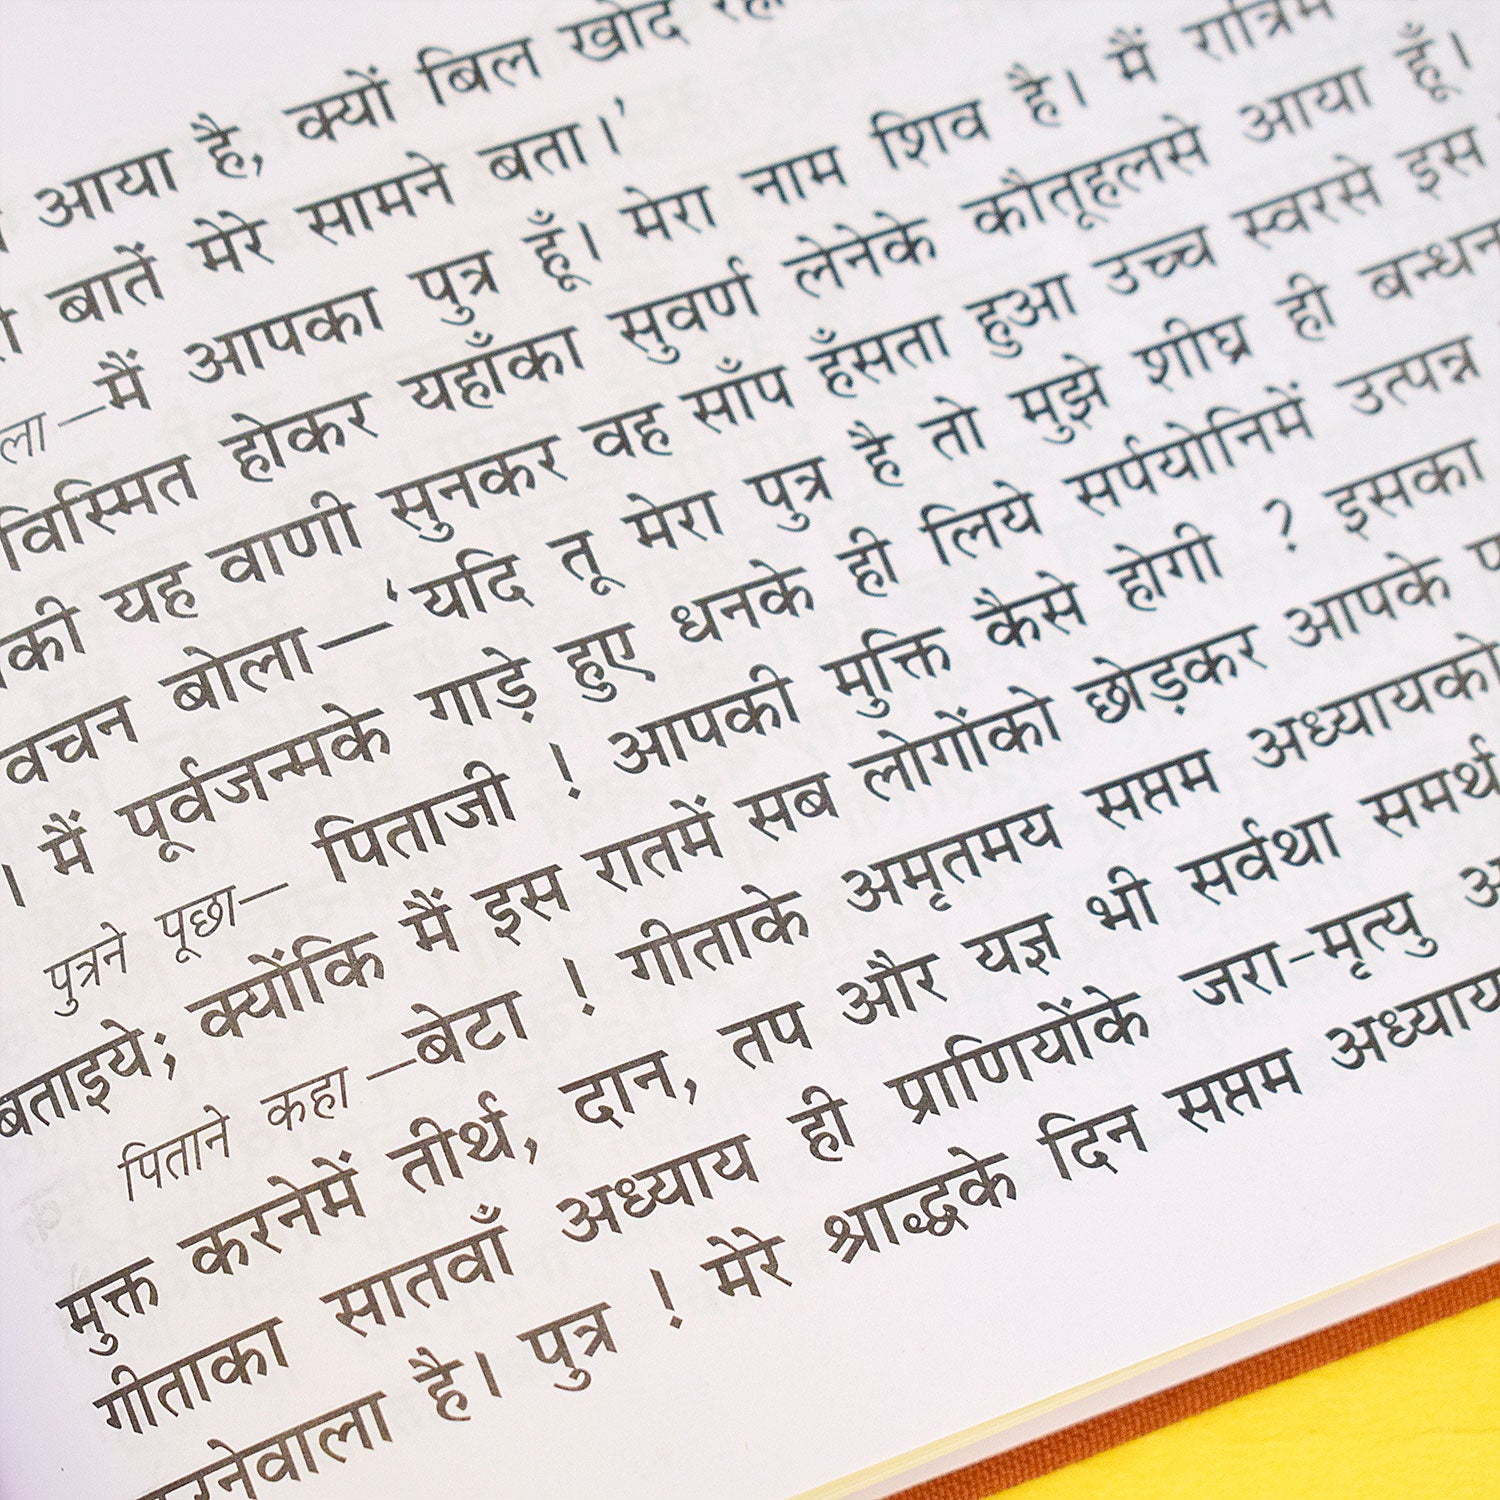 आया है, क्यों बिल खोद
बातें मेरे सामने बता।’
ला—मैं आपका पुत्र हूँ। मेरा नाम शिव है। मैं रात्रिमें
विस्मित होकर यहाँका सुवर्ण लेनेके कौतूहलसे आया हूँ।
की यह वाणी सुनकर वह साँप हँसता हुआ उच्च स्वरसे इस
वचन बोला—‘यदि तू मेरा पुत्र है तो मुझे शीघ्र ही बन्धन
। मैं पूर्वजन्मके गाड़े हुए धनके ही लिये सर्पयोनिमें उत्पन्न
पुत्रने पूछा— पिताजी ! आपकी मुक्ति कैसे होगी ? इसका
बताइये; क्योंकि मैं इस रातमें सब लोगोंको छोड़कर आपके
पिताने कहा—बेटा ! गीताके अमृतमय सप्तम अध्यायको
मुक्त करनेमें तीर्थ, दान, तप और यज्ञ भी सर्वथा समर्थ
गीताका सातवाँ अध्याय ही प्राणियोंके जरा-मृत्यु
रनेवाला है। पुत्र ! मेरे श्राद्धके दिन सप्तम अध्याय